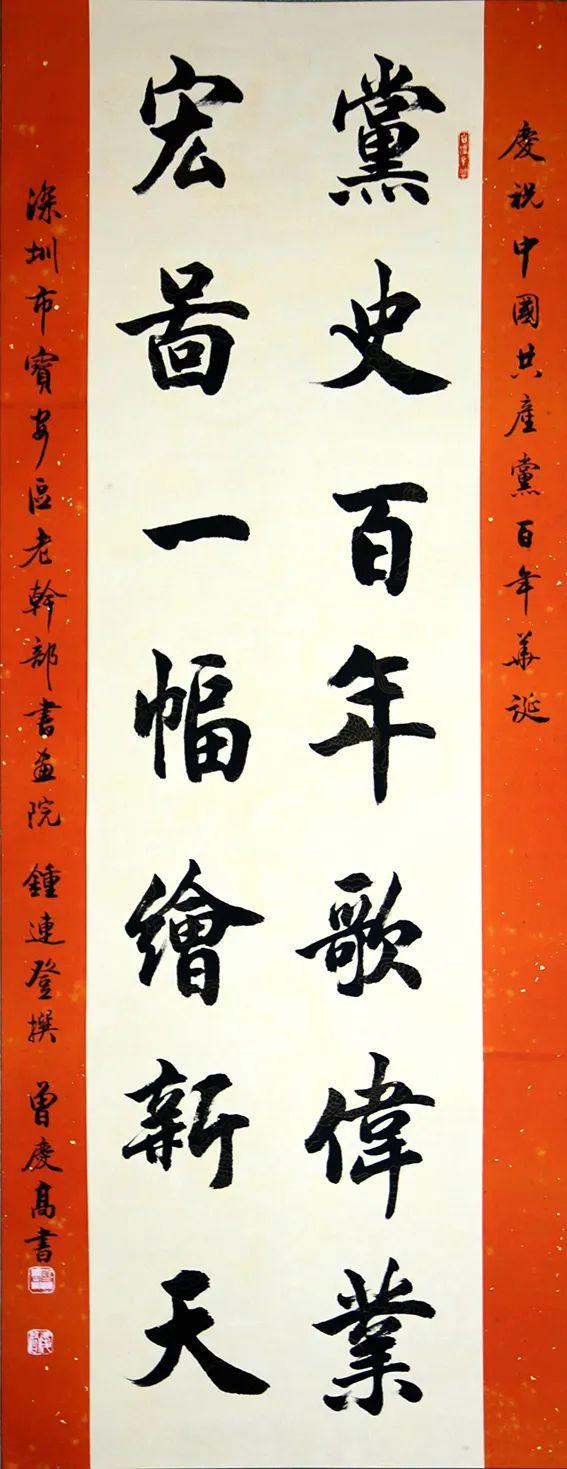 慶祝中國共產黨百年華誕
黨史百年歌偉業
宏圖一幅繪新天
深圳市寳安區老幹部書畫院 鍾連登撰 曾慶高書